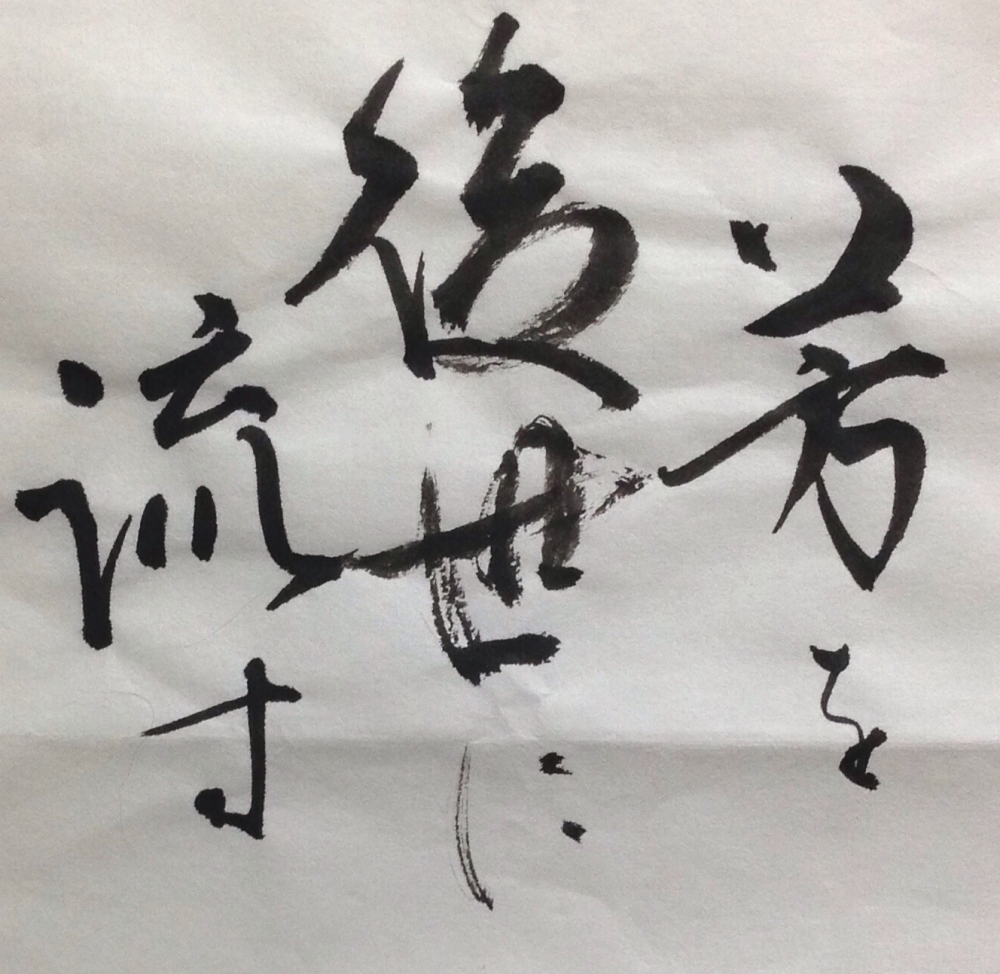 芳を
後世に
流す